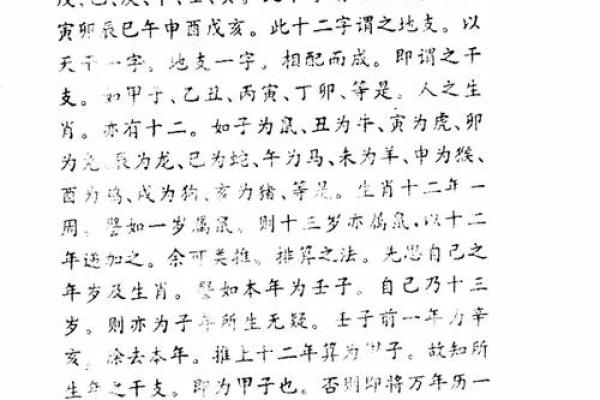 寅卯辰巳午申酉戌亥。此十二字谓之地支。以
天干一字,地支一字,相配而成。即谓之干
支。如甲子、乙丑、丙寅、丁卯、等是。人之生
肖。亦有十二。如子为鼠、丑为牛、寅为虎、卯
为兔、辰为龙、巳为蛇、午为马、未为羊、申为猴、
酉为鸡、戌为狗、亥为猪、等是。生肖十二年一
周。譬如一岁属鼠。则十三岁亦属鼠,以十二
年递加之。余可类推。排算之法。先思自己之
年岁及生肖。譬如本年为壬子。自己乃十三
岁。则亦为子年所生无疑。壬子前一年为辛
亥。除去本年。推上十二年算为甲子。故知所
生年之干支。即为甲子也。否则即将万年历一